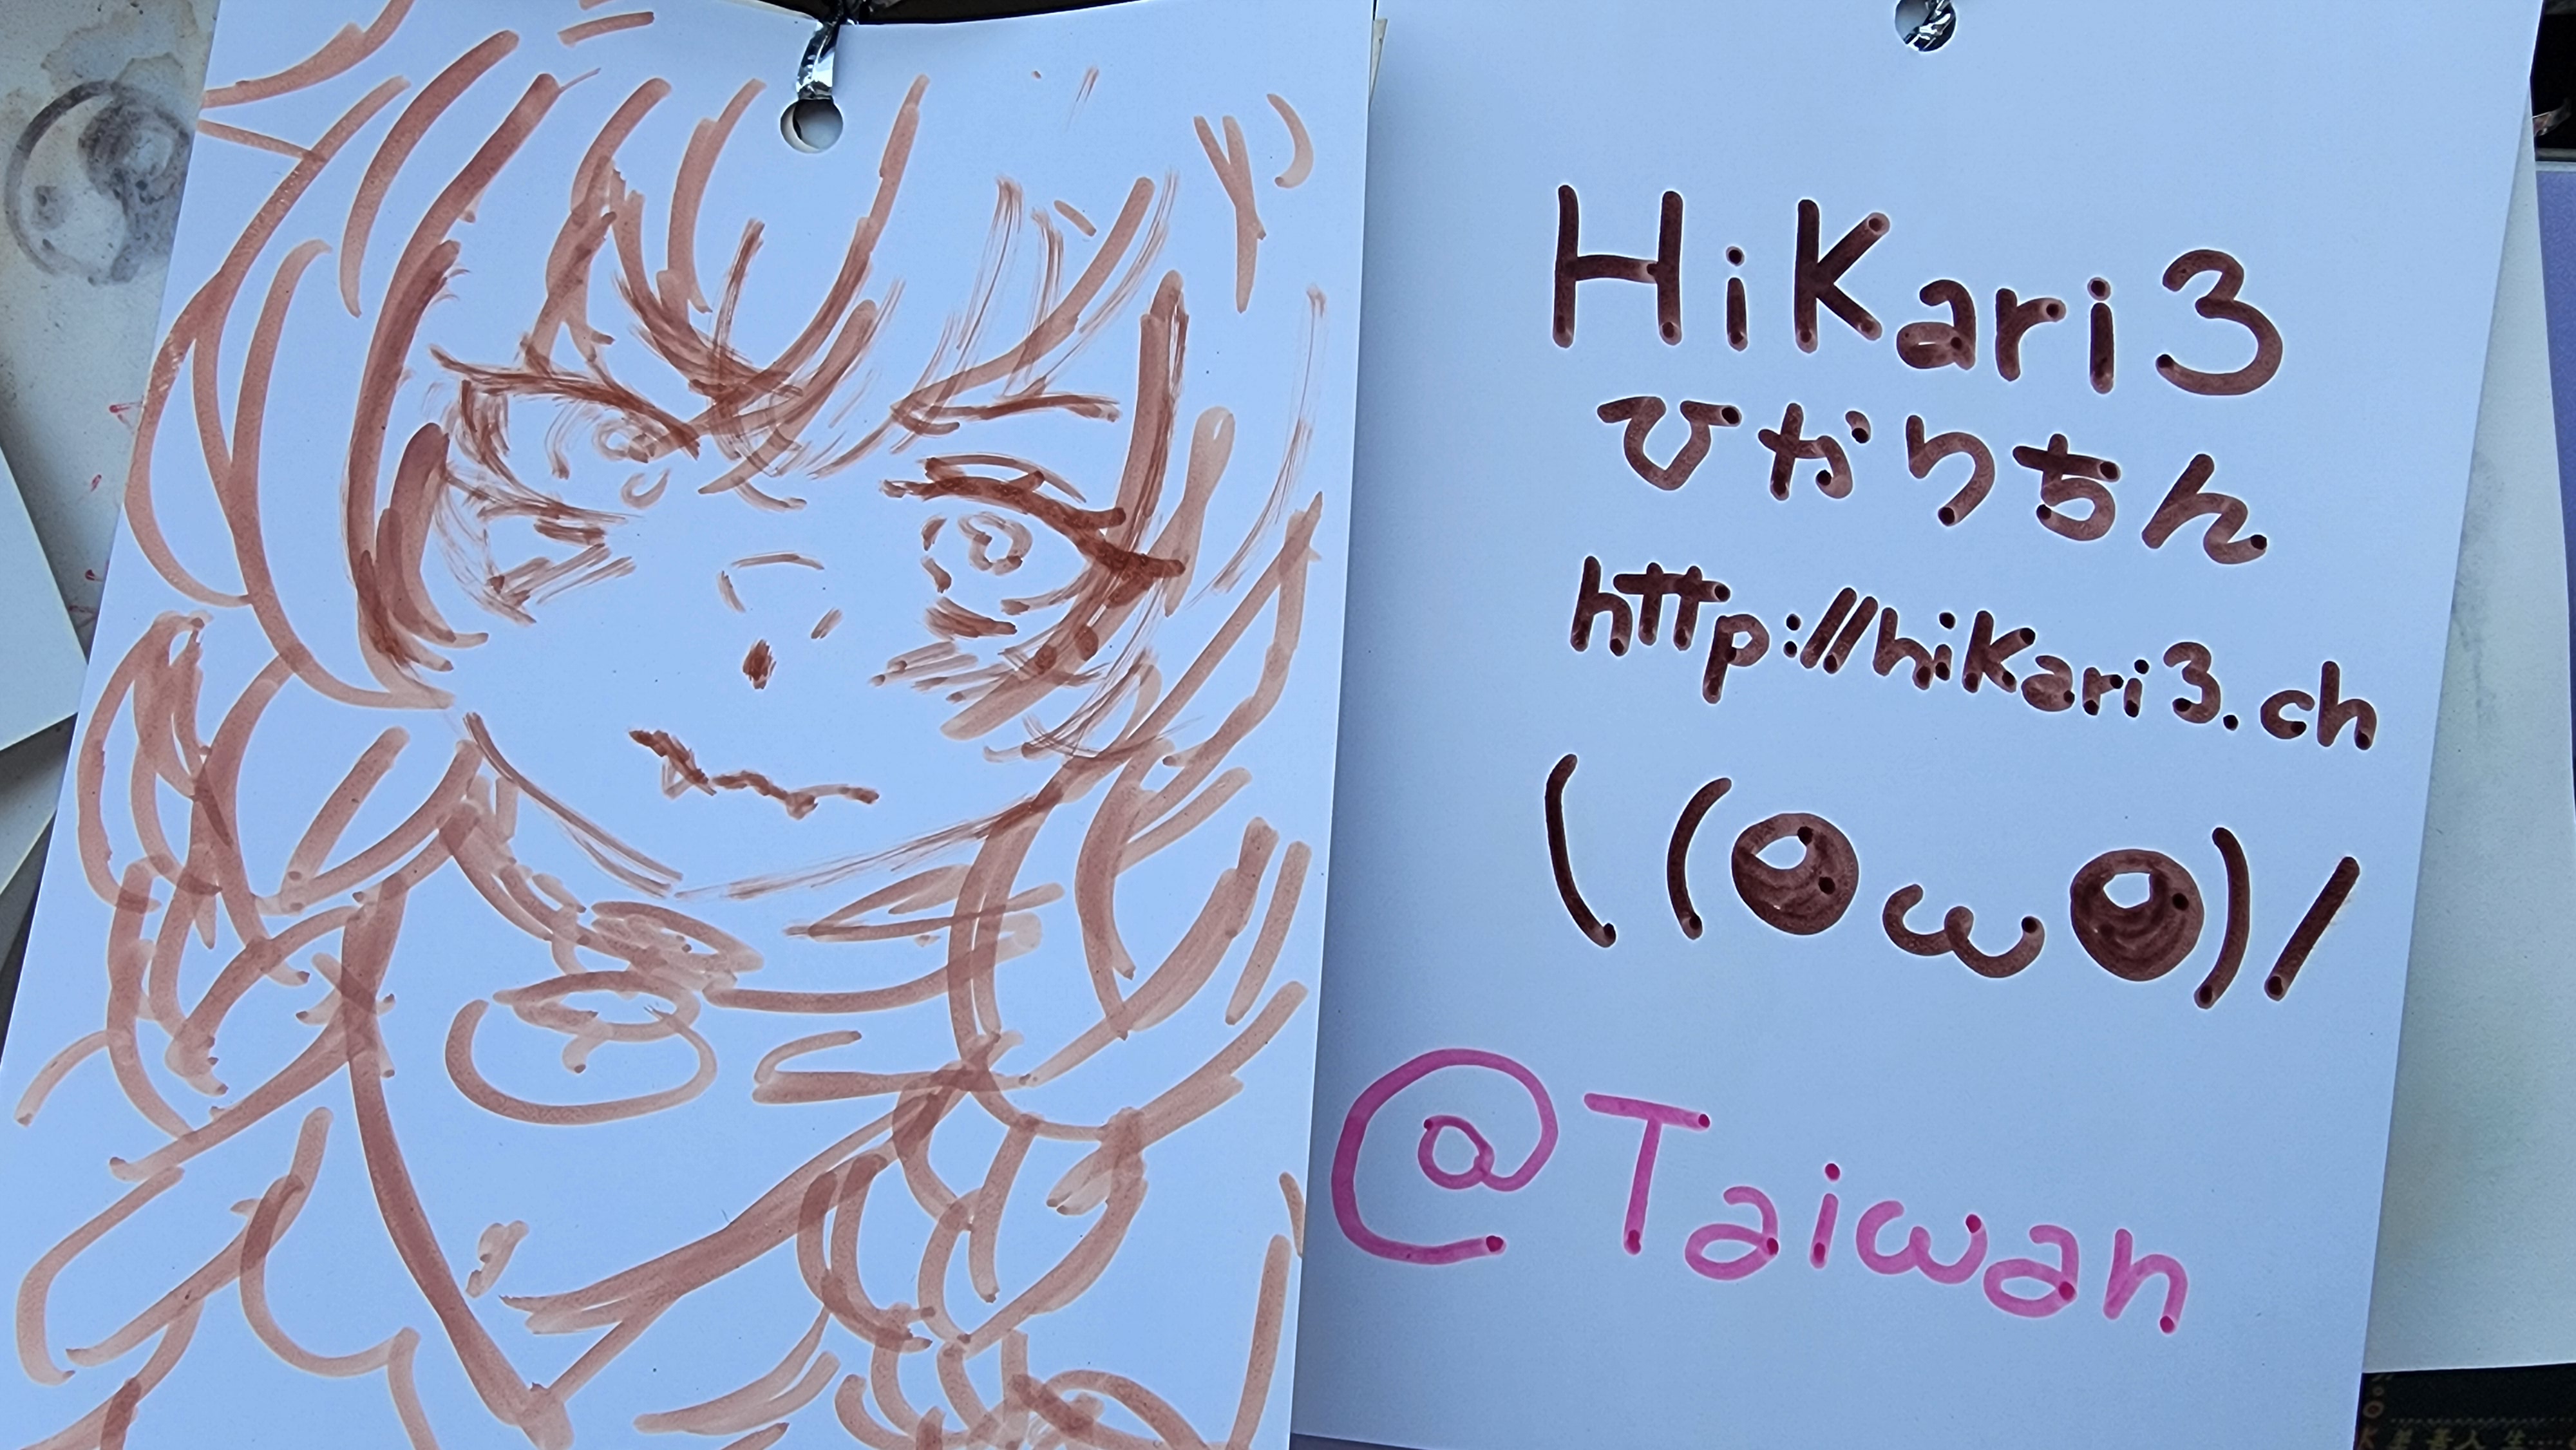 HiKari3
ひかりちん
http://hiKari3.ch
\(◉ω◉)/
@Taiwan